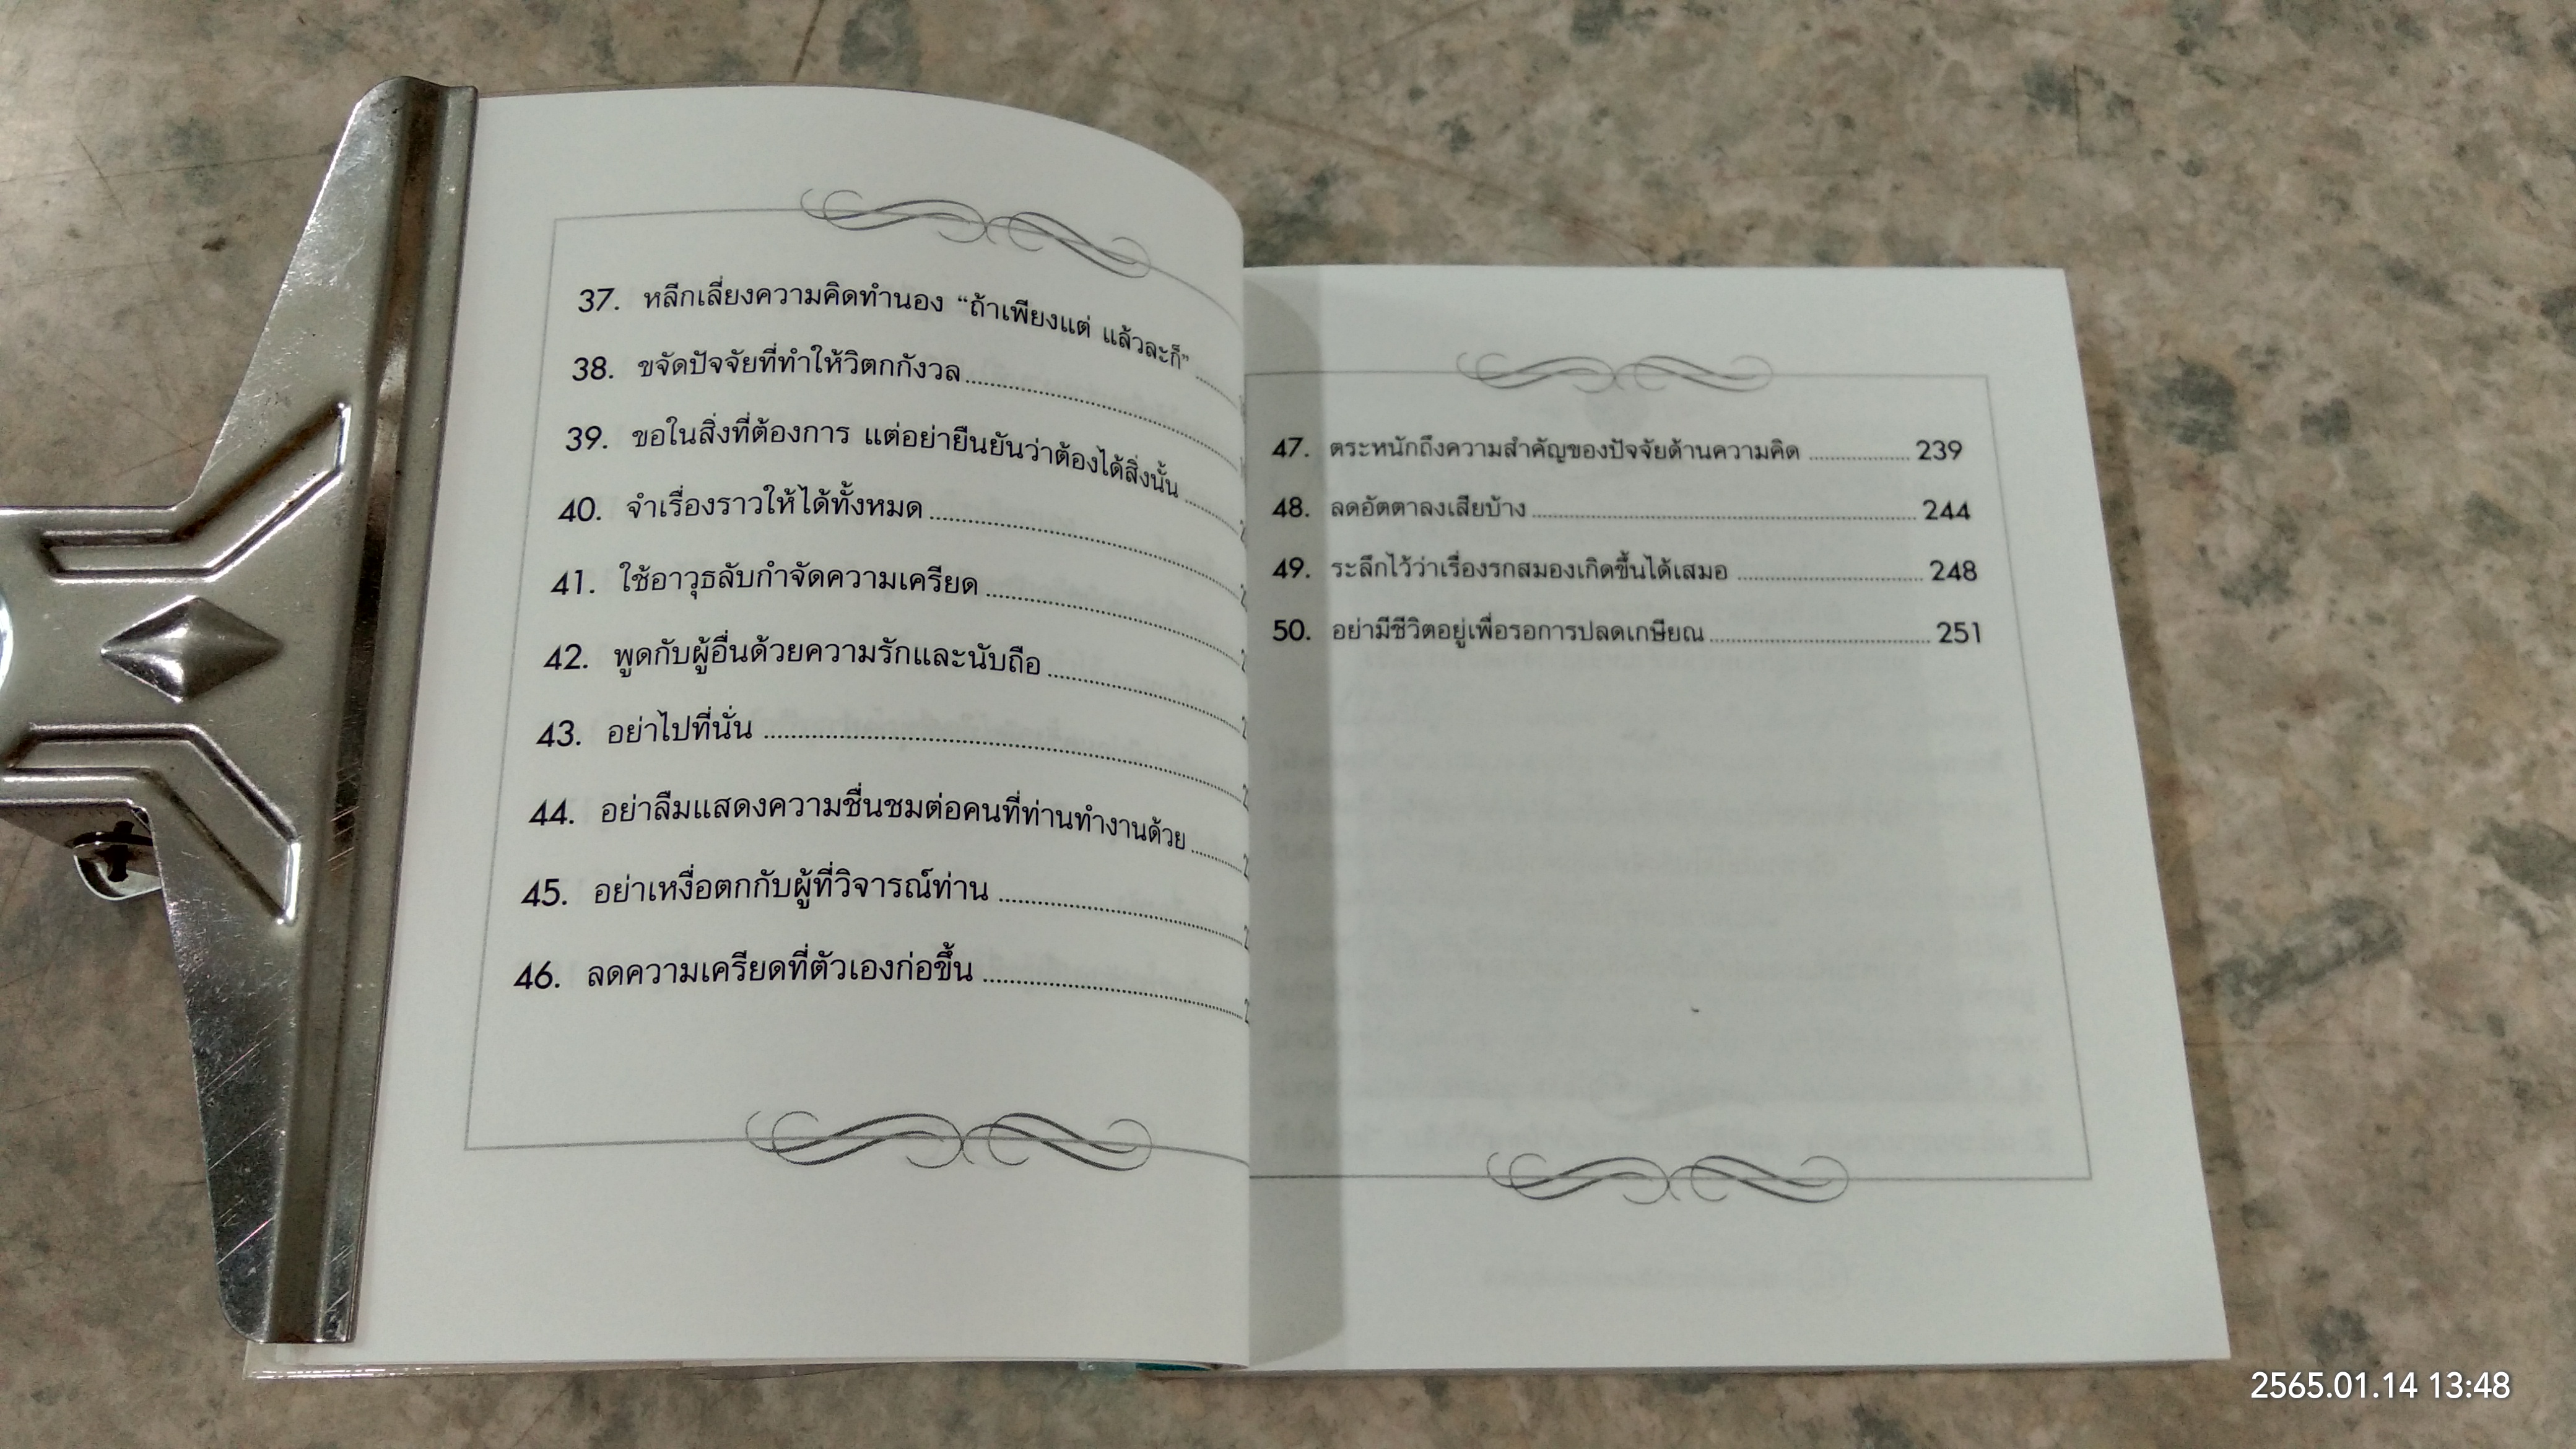 37. หลีกเลี่ยงความคิดทำนอง “ถ้าเพียงแต่ แล้วละก็”
38. ขจัดปัจจัยที่ทำให้วิตกกังวล
39. ขอในสิ่งที่ต้องการ แต่อย่ายืนยันว่าต้องได้สิ่งนั้น
40. จำเรื่องราวให้ได้ทั้งหมด
41. ใช้อาวุธลับกำจัดความเครียด
42. พูดกับผู้อื่นด้วยความรักและนับถือ
43. อย่าไปที่นั่น
44. อย่าลืมแสดงความชื่นชมต่อคนที่ท่านทำงานด้วย
45. อย่าเหงื่อตกกับผู้ที่วิจารณ์ท่าน
46. ลดความเครียดที่ตัวเองก่อขึ้น
47. ตระหนักถึงความสำคัญของปัจจัยด้านความคิด 239
48. ลดอัตตาลงเสียบ้าง 244
49. ระลึกไว้ว่าเรื่องรกสมองเกิดขึ้นได้เสมอ 248
50. อย่ามีชีวิตอยู่เพื่อรอการปลดเกษียณ 251
2565.01.14 13:48